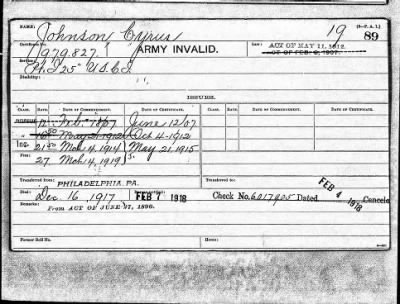 NAME: Johnson Cyrus 19 (3—P. A. I.) 89
Certificate No. 979,827. ARMY INVALID. Law: ACT OF MAY 11, 1912.
ACT OF FEB. 6, 1907.
Service: 25" U.S.C.T.
Disability:
ISSUES.
CLASS. DATE OF COMMENCEMENT. DATE OF CERTIFICATE. CLASS. DATE OF COMMENCEMENT. DATE OF CERTIFICATE.
12 1907 June 12/07
May 1912 Oct 4-1912
21 50 Mch 4, 1914 May 21, 1915
27. Mch 4, 1919
Transferred from PHILADELPHIA, PA.
Died: Dec 16, 1917 FEB 7 1918 Check No. 6217905 Dated FEB 4 1918 Cancele
Remarks: From ACT OF JUNE 27, 1890.
Former Roll No. Home: